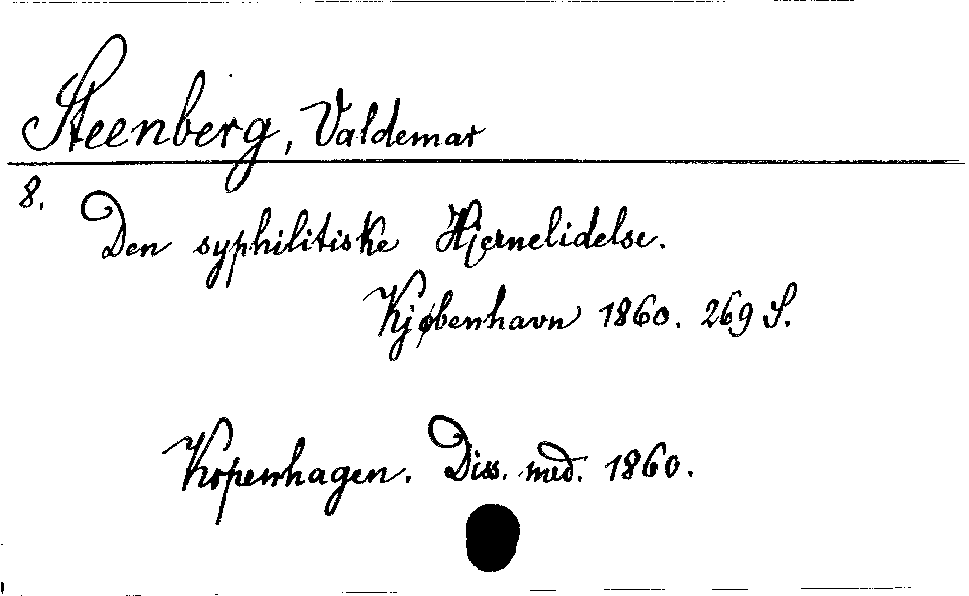 Steenberg, Valdemar
8.
Den syphilitiske Hjernelidelse.
Kjøbenhavn 1860. 269 S.
Kopenhagen. Diss. med. 1860.